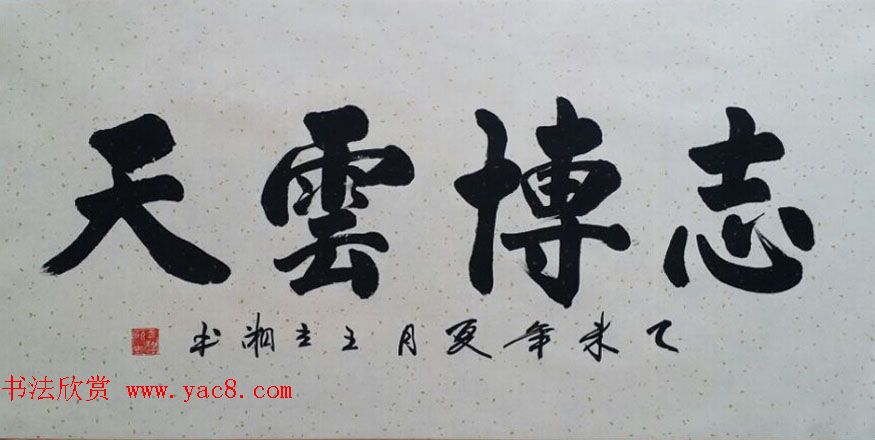 志博雲天
乙未年夏月王立湘书
书法欣赏 www.yac8.com